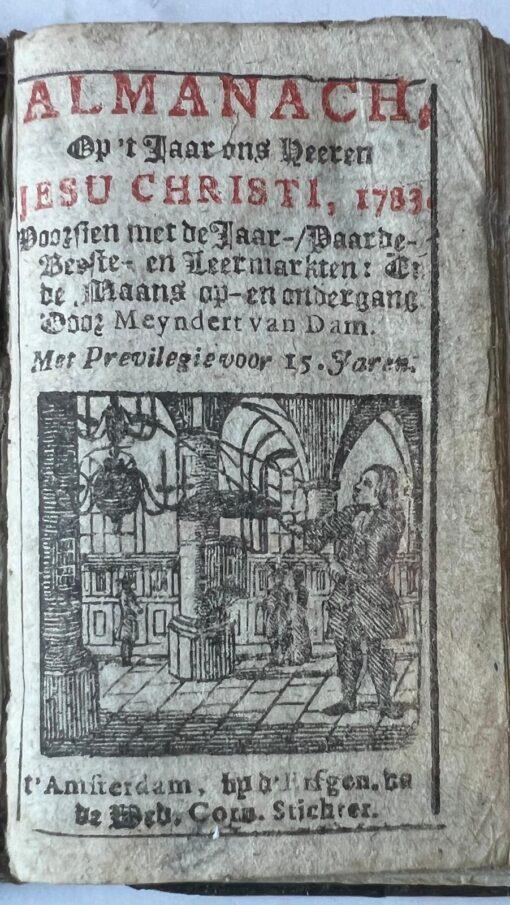 ALMANACH,
Op 't Jaar ons Heeren
JESU CHRISTI, 1783.
Voorsien met de Jaar-/Paarde-
Beeste- en Leermarkten: En
de Maans op- en ondergang
Door Meyndert van Dam.
Met Previlegie voor 15. Jaren.
t'Amsterdam, by d'Erfgen. va
de Wed. Corn. Stichter.